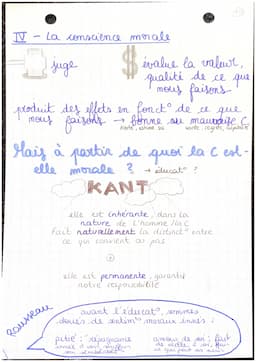 IV - La conscience morale
juge
évalue la valeur,
qualité de ce que
nous faisons
produit des effets en fonct° de ce que
nous faisons → bonne ou mauvaise C
Mais à partir de quoi la C est-
elle morale ? → éducat° ?
KANT
elle est inhérente, dans la
nature de l'homme, la C
fait naturellement la distinct° entre
ce qui convient ou pas
elle est permanente, garantit
notre responsabilité
Rousseau
avant l'éducat°, sommes
doués de sentim^ts moraux innés :
pitié : répugnance
amour de soi : fait